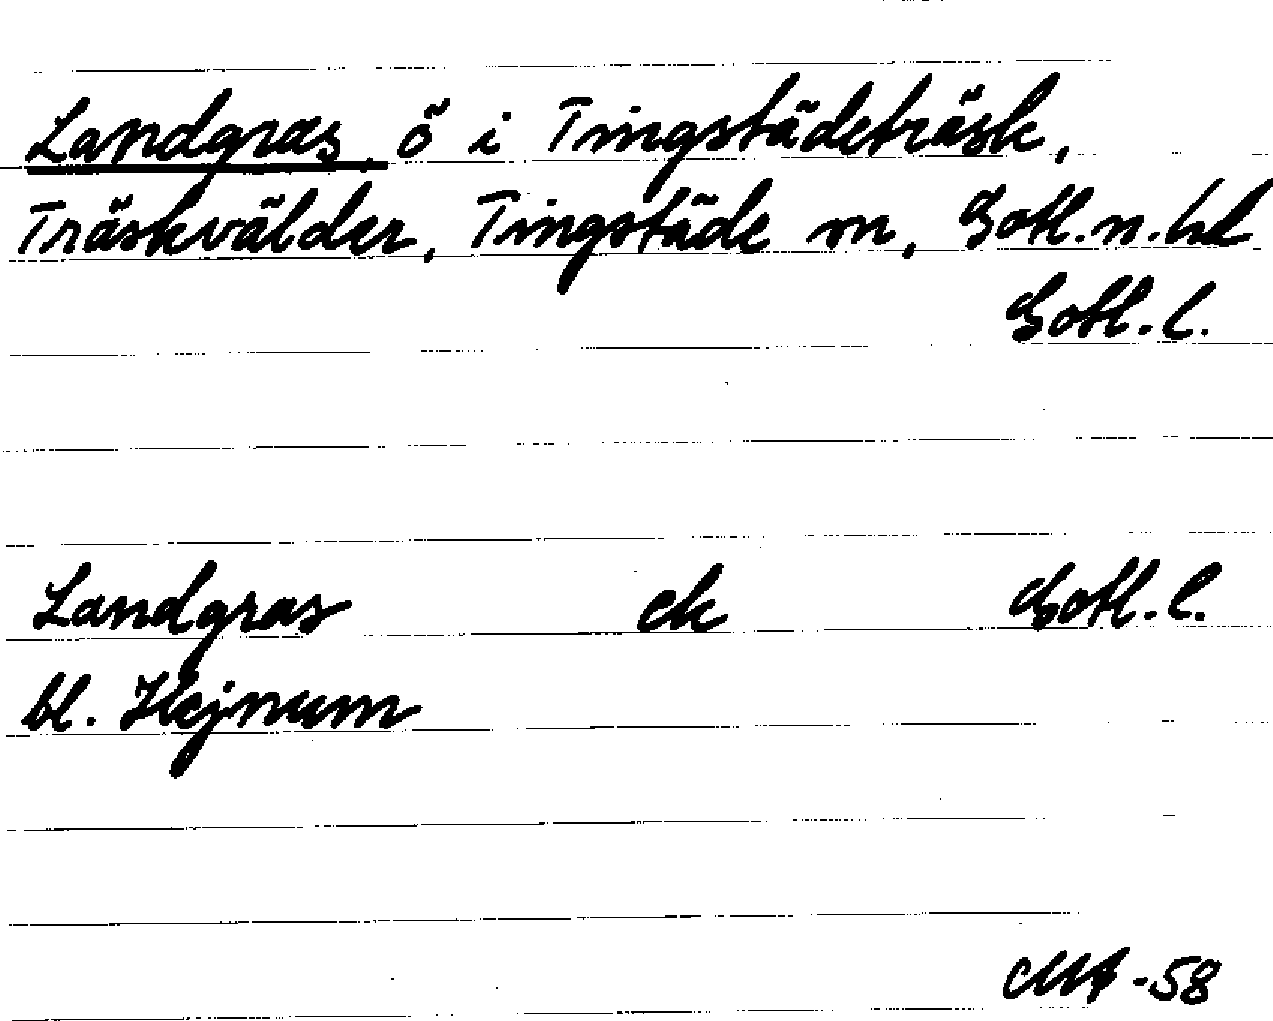 Landgras, ö i Tingstädeträsk,
Träskvälder, Tingstäde sn, Gotl. n. hd
Gotl. l.
Landgras ek Gotl. l.
bl. Hejnum
-58